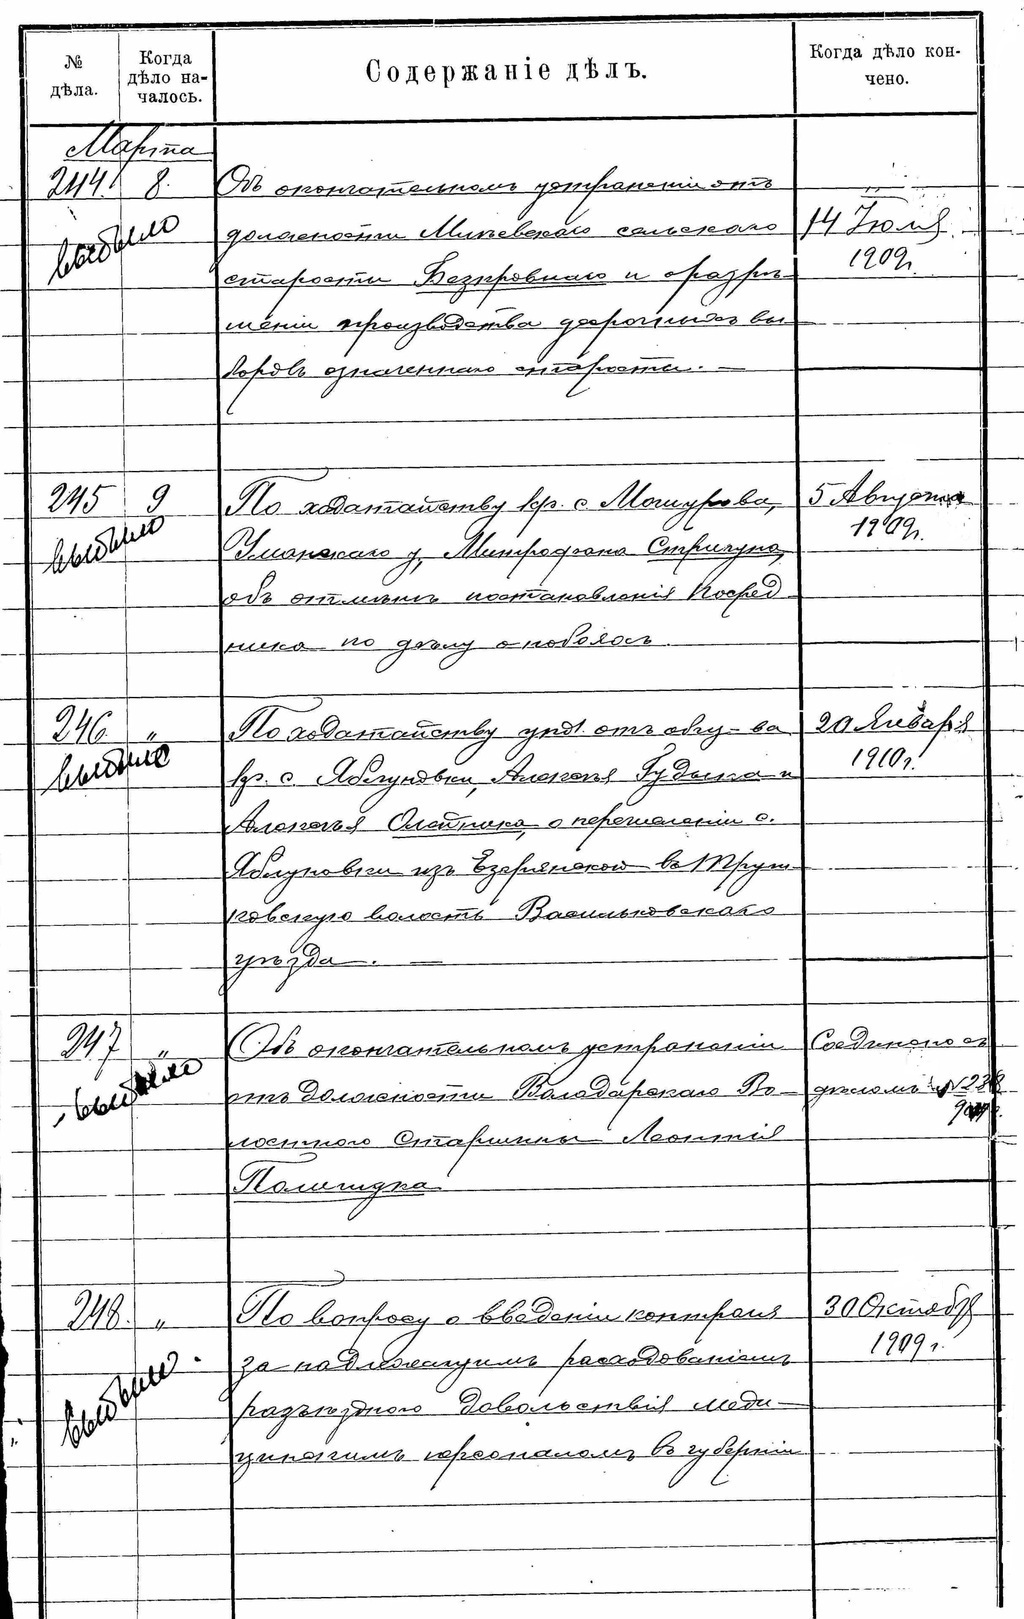 № дѣла.
Когда дѣло на-
чалось.
Содержаніе дѣлъ.
Когда дѣло кон-
чено.
Марта
244. 8. Объ окончательномъ устраненіи отъ
выбыло
должности Михѣевскаго сельскаго
старосты Безкровнаго и о разрѣ-
шеніи производства досрочныхъ вы
боровъ означеннаго старосты. —
14 Іюля
1909г.
245 9 По ходатайству кр. с. Мошурова,
выбыло
Уманскаго у, Митрофана Стригуна,
объ отмѣнѣ постановленія Посред
ника по дѣлу о побояхъ
5 Августа
1909г.
246 „ По ходатайству упол. отъ общ-ва
выбыло
кр. с. Яблуновки, Алексѣя Гудыма и
Алексѣя Олейника, о перечисленіи с.
Яблуновки изъ Езерянской въ Труш-
ковскую волость Васильковскаго
уѣзда. —
20 Января
1910г.
247 „ Объ окончательномъ устраненіи
выбыло
отъ должности Володарскаго Во-
лостного Старшины Леонтія
Полищука
Соединено съ
дѣломъ №238
248. „ По вопросу о введеніи контроля
выбыло
за надлежащимъ расходованіемъ
разъѣздного довольствія меди-
цинскимъ персоналомъ въ губерніи
30 Октября
1909 г.